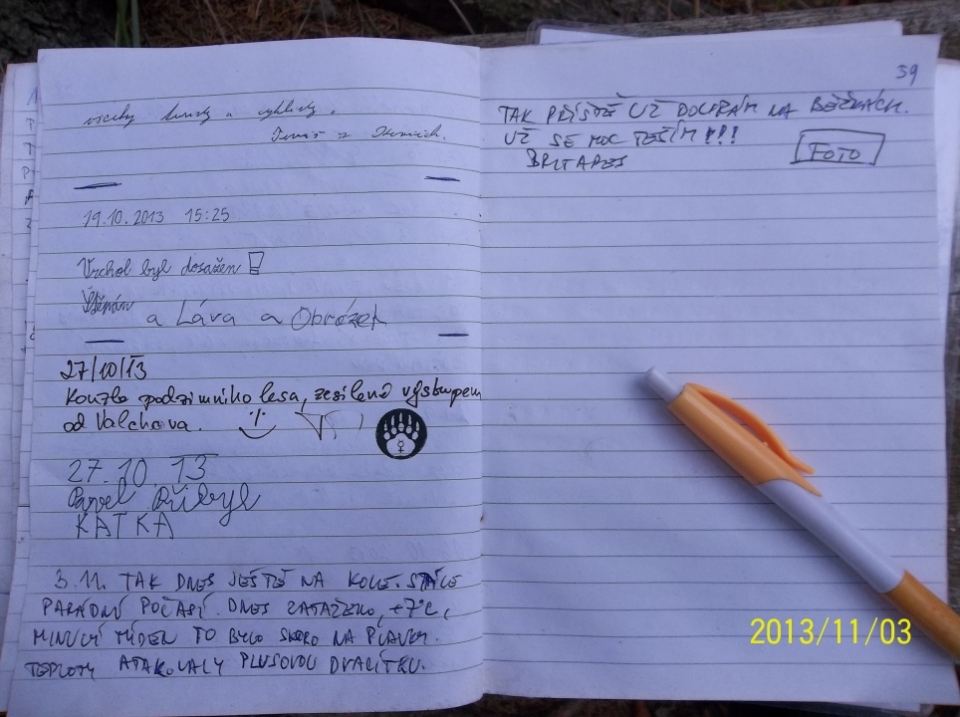 všechny hrady a výhledy.
Tomáš z
19.10.2013 15:25
Vrchol byl dosažen!
Štěpán a Láva a Obrázek
27/10/13
Kouzlo podzimního lesa, zesílené výstupem
od Valchova.
27.10 13
Pavel Přibyl
KATKA
3.11. TAK DNES JEŠTĚ NA KOLE. STÁLE
PARÁDNÍ POČASÍ. DNES ZATAŽENO, +7°C,
MINULÝ TÝDEN TO BYLO SKORO NA PLAVKY.
TEPLOTY ATAKOVALY PLUSOVOU DVACÍTKU.
39
TAK PŘÍŠTĚ UŽ DOUFÁM NA BĚŽKÁCH.
UŽ SE MOC TĚŠÍM!!!
FOTO
2013/11/03